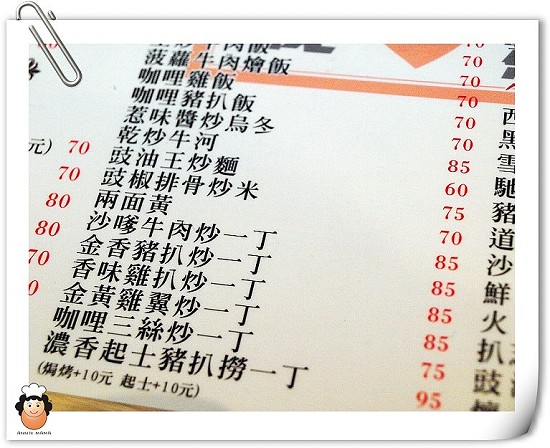 菠蘿牛肉燴飯 70
咖哩雞飯 70
咖哩豬扒飯 70
惹味醬炒烏冬 70
乾炒牛河 70
豉油王炒麵 85
豉椒排骨炒米 60
兩面黃 75
沙嗲牛肉炒一丁 70
金香豬扒炒一丁 85
香味雞扒炒一丁 85
金黃雞翼炒一丁 85
咖哩三絲炒一丁 85
濃香起士豬扒撈一丁 75
(焗烤+10元 起士+10元) 95
元) 70
70
80
80
70
0
西
黑
雪
馳
豬
道
沙
鮮
火
扒
豉
ANNIE MAMA